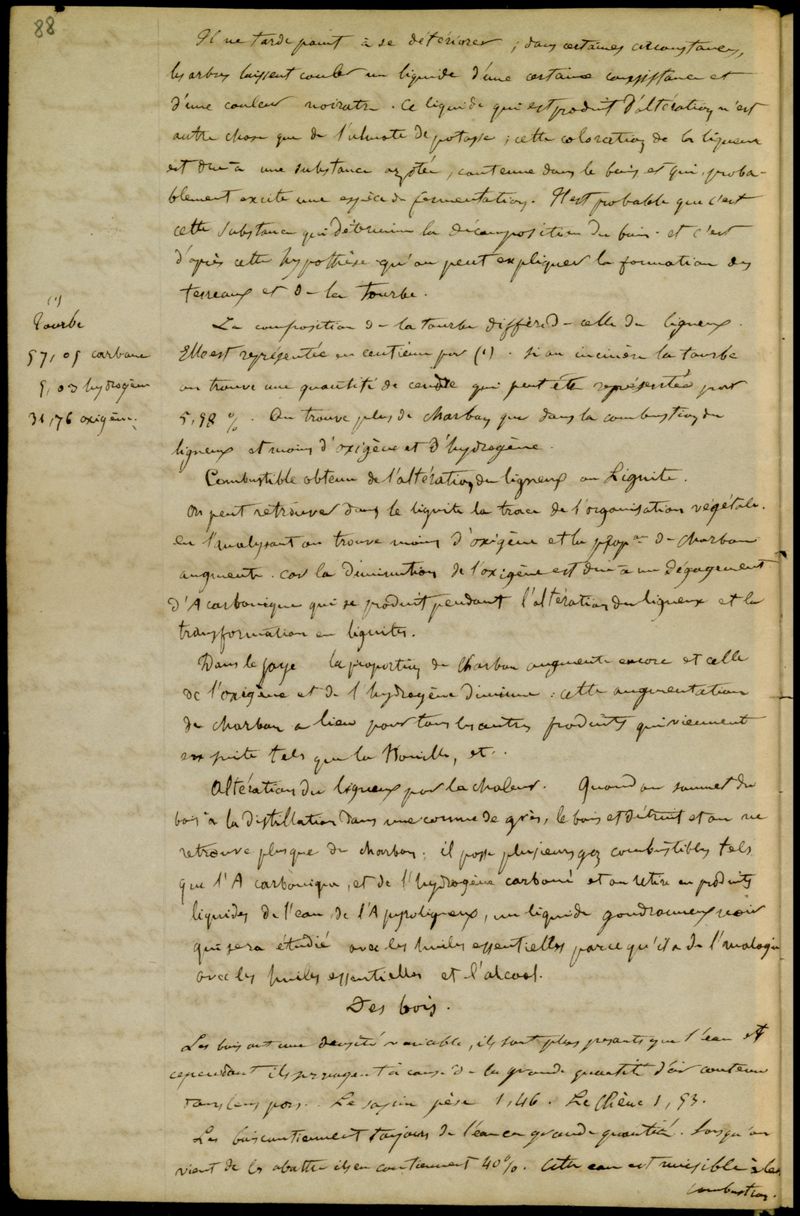 88
Il ne tarde point à se détériorer ; dans certaines circonstances,
les arbres laissent couler un liquide d'une certaine consistance et
d'une couleur noiratre. Ce liquide qui est produit d'altération n'est
autre chose que de l'ulmate de potasse ; cette coloration de la liqueur
est due à une substance azotée, contenue dans le bois et qui, proba-
blement excite une espèce de fermentation. Il est probable que c'est
cette substance qui détermine la décomposition du bois. et c'est
d'après cette hypothèse qu'on peut expliquer la formation des
terreaux et de la tourbe.
(1)
Tourbe
57,05 carbone
5,03 hydrogèn
31,76 oxigène.
La composition de la tourbe diffère de celle du ligneux.
Elle est représentée en centième par (1). si on incinère la tourbe
on trouve une quantité de cendre qui peut être représentée par
5,98 %. On trouve plus de charbon que dans la combustion du
ligneux et moins d'oxigène et d'hydrogène.
Combustible obtenu de l'altération du ligneux ou Lignite.
On peut retrouver dans le lignite la trace de l'organisation végétale.
en l'analysant on trouve moins d'oxigène et la propon de charbon
augmente. car la diminution de l'oxigène est due à un dégagement
d'A carbonique qui se produit pendant l'altération du ligneux et la
transformation en lignites.
Dans le jaye la proportion de charbon augmente encore et celle
de l'oxigène et de l'hydrogène diminue : cette augmentation
de charbon a lieu pour tous les autres produits qui viennent
ensuite tels que la Houille, et..
Altération du ligneux par la chaleur. Quand on soumet du
bois à la distillation dans une cornue de grès, le bois est détruit et on ne
retrouve plus que du charbon ; il passe plusieurs gaz combustibles tels
que l'A carbonique, et de l'hydrogène carboné et on retire en produits
liquides de l'eau, de l'A pyroligneux, un liquide goudronneux noir
qui sera étudié avec les huiles essentielles parce qu'il a de l'analogie
avec les huiles essentielles et l'alcool.
Des bois.
Les bois ont une densité variable, ils sont plus pesants que l'eau et
cependant ils surnagent à cause de la grande quantité d'air contenu
dans leurs pores. Le sapin pèse 1,46. Le Chêne 1,53.
Les bois contiennent toujours de l'eau en grande quantité. Lorsqu'on
vient de les abattre ils en contiennent 40 %. Cette eau est nuisible à la
combustion.